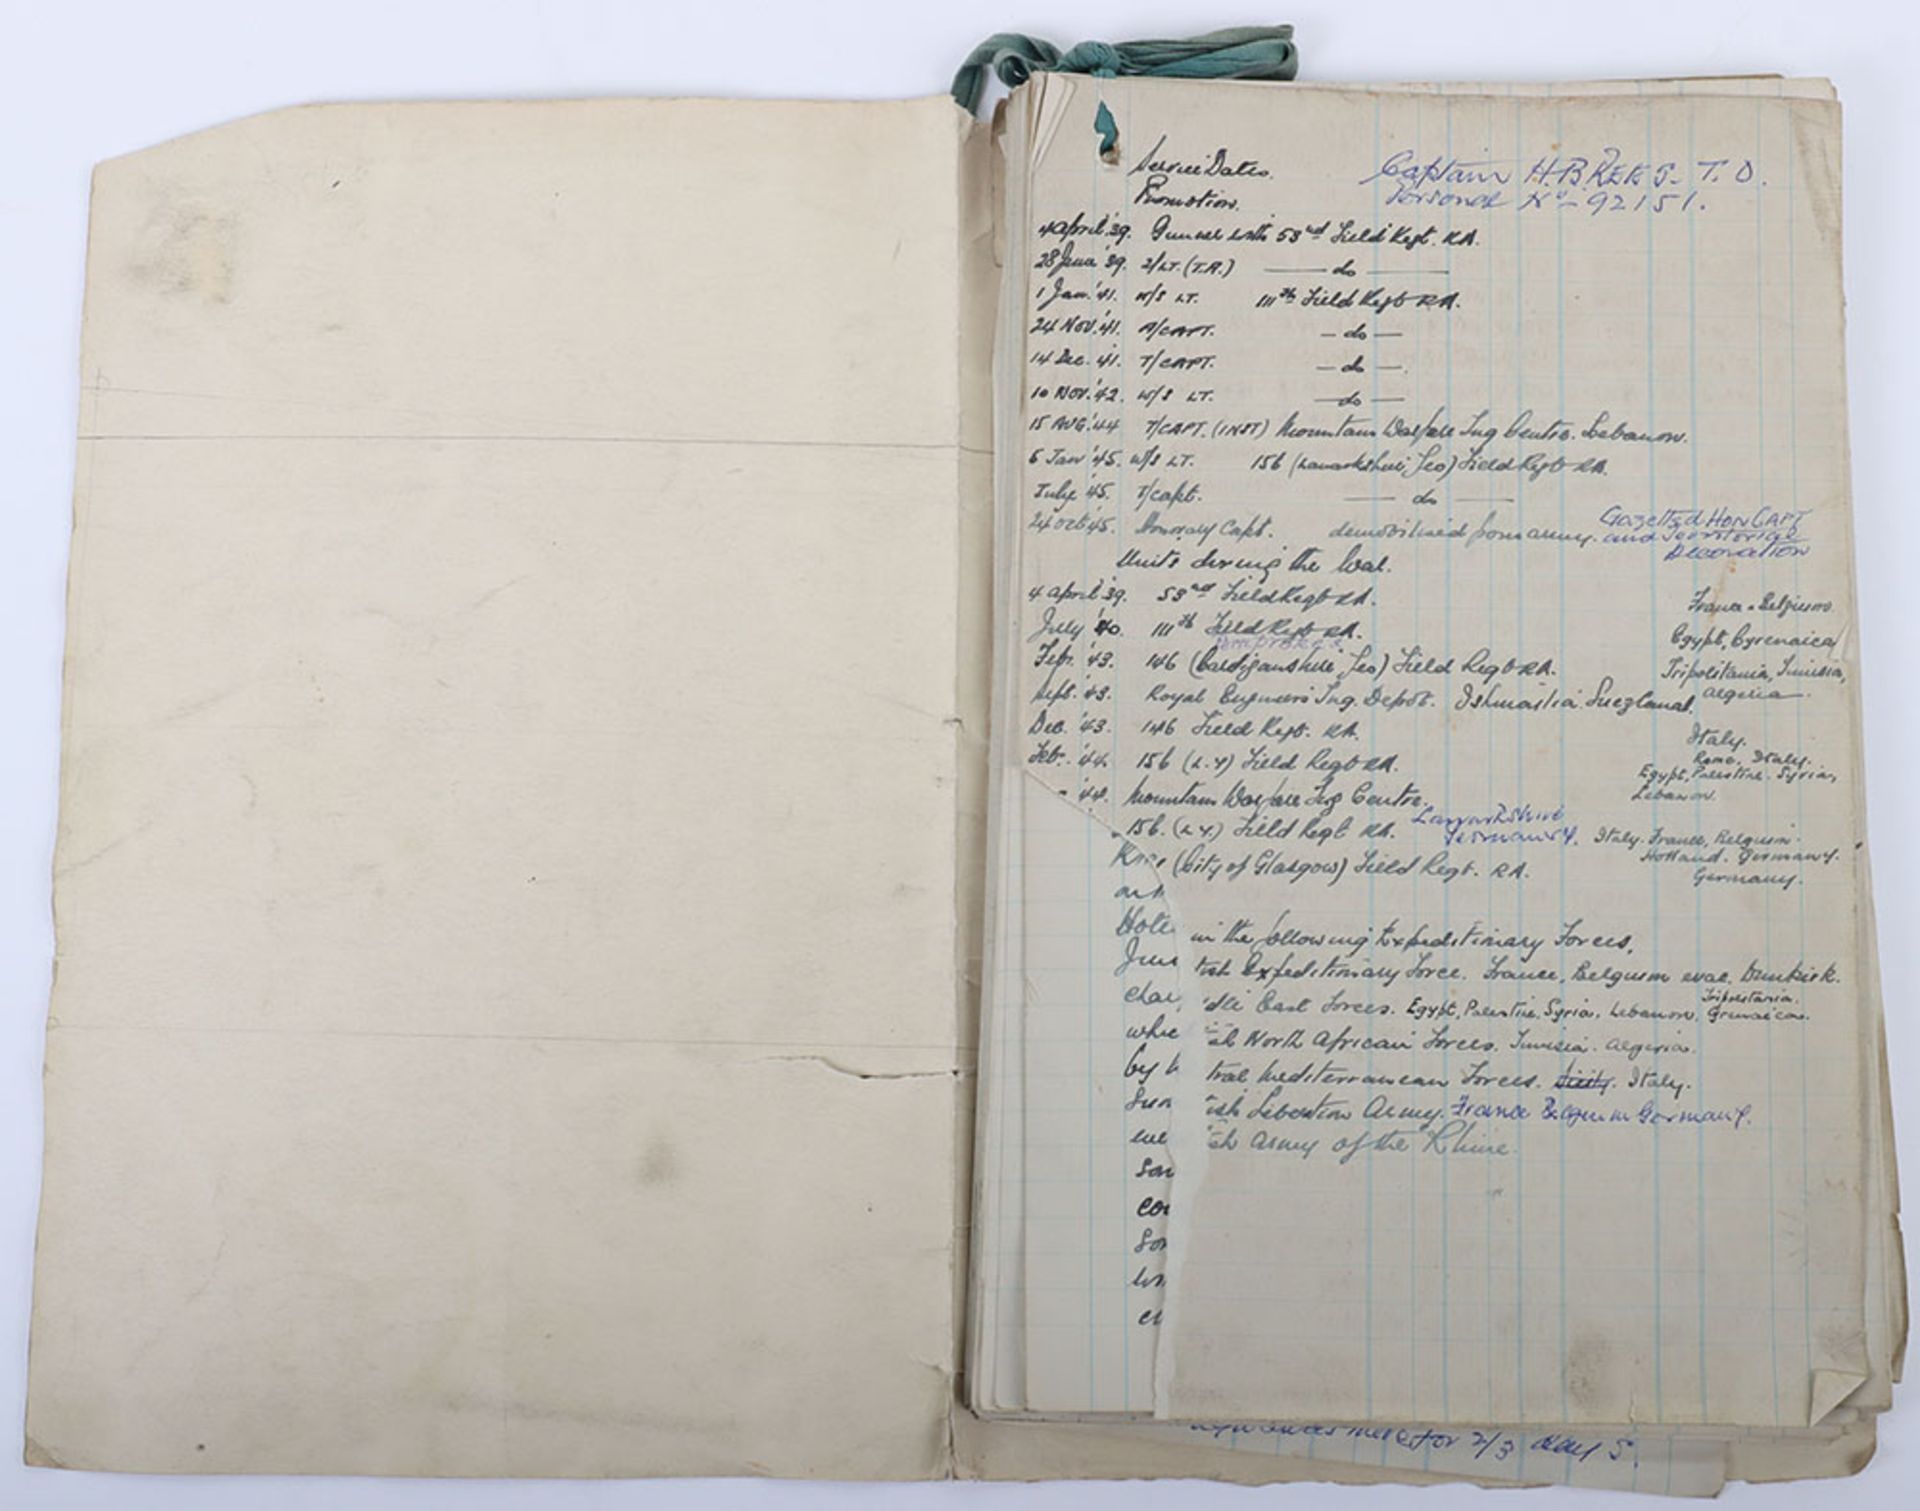 Service Dates. Captain H.B. REES. T.D.
Promotion. Personal No- 92151.
4 April '39. Gunner with 53rd Field Regt. RA.
28 June '39. 2/LT. (T.A.) — do —
1 Jan. '41. W/S LT. 111th Field Regt RA.
24 Nov. '41. A/CAPT. — do —
14 Dec. '41. T/CAPT. — do —.
10 Nov. '42. W/S LT. — do —
15 AUG. '44 T/CAPT. (INST) Mountain Warfare Tng Centre. Lebanon.
5 Jan '45. W/S LT. 156 (Lanarkshire Yeo) Field Regt RA.
July '45. T/Capt. — do —
24 Oct '45. Honorary Capt. demobilised from army. Gazetted HON CAPT
and Territorial
Decoration
Units during the War.
4 April '39. 53rd Field Regt RA. France - Belgium.
July '40. 111th Field Regt RA. Egypt, Cyrenaica
Febr. '43. 146 (Cardiganshire Yeo) Field Regt RA. Tripolitania, Tunisia,
Sept. '43. Royal Engineers Tng. Depot. Ishmailia. Suez Canal. Algeria
Dec. '43. 146 Field Regt. RA. Italy.
Febr. '44. 156 (L.Y) Field Regt RA. Rome. Italy.
Egypt, Palestine. Syria,
- '44. Mountain Warfare Tng Centre. Lebanon.
156. (L.Y.) Field Regt RA. Lanarkshire
Yeomanry. Italy. France, Belgium.
Holland. Germany.
(City of Glasgow) Field Regt. RA. Germany.
in the following Expeditionary Forces.
tish Expeditionary Force. France, Belgium evac. Dunkirk.
ddle East Forces. Egypt, Palestine, Syria, Lebanon, Tripolitania. Cyrenaica.
ish North African Forces. Tunisia. Algeria.
tral Mediterranean Forces. Sicily. Italy.
ish Liberation Army. France Belgium Germany.
ish Army of the Rhine.
for 2/3 days.